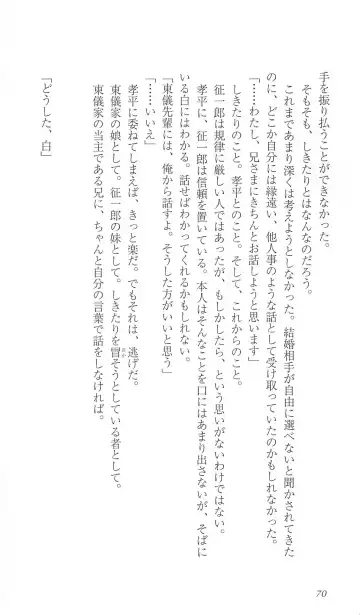 手を振り払うことができなかった。
そもそも、しきたりとはなんなのだろう。
これまであまり深くは考えようとしなかった。結婚相手が自由に選べないと聞かされてきた
のに、どこか自分には縁遠い、他人事のような話として受け取っていたのかもしれなかった。
「……わたし、兄さまにきちんとお話しようと思います」
しきたりのこと。孝平とのこと。そして、これからのこと。
征一郎は規律に厳しい人ではあったが、もしかしたら、という思いがないわけではない。
孝平に、征一郎は信頼を置いている。本人はそんなことを口にはあまり出さないが、そばに
いる白にはわかる。話せばわかってくれるかもしれない。
「東儀先輩には、俺から話すよ。そうした方がいいと思う」
「……いいえ」
孝平に委ねてしまえば、きっと楽だ。でもそれは、逃げだ。
東儀家の娘として。征一郎の妹として。しきたりを冒そうとしている者として。
東儀家の当主である兄に、ちゃんと自分の言葉で話をしなければ。
「どうした、白」
70